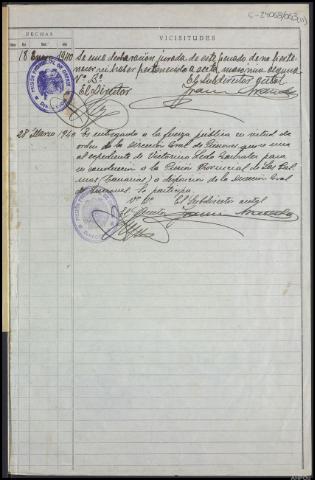 C-24068/053(11)
FECHAS
VICISITUDES
Día Mes Año
18 Enero 1940 Se une declaración jurada de este penado de no pertenecer
ni haber pertenecido a secta masónica alguna
Vº Bº El Subdirector acctal
El Director
28 Marzo 1940 Es entregado a la fuerza pública en virtud de
orden de la Dirección Gral de Prisiones que se une
al expediente de Victoriano para
su conducción a la Prisión Provincial de Las Pal
mas (Canarias) a disposición de la Dirección Gral
de Prisiones. Se participa.
Vº Bº El Subdirector acctal
El Director